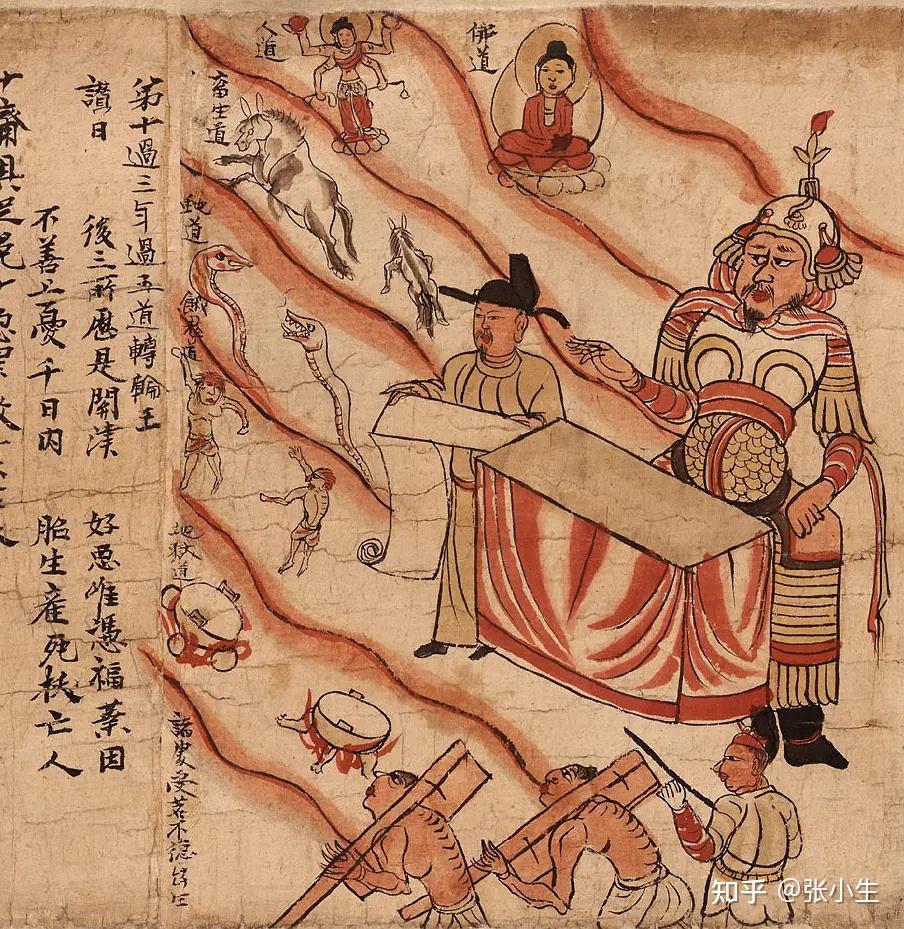 佛道
人道
畜生道
道
餓鬼道
地獄道
受苦不
第十過三年過五道轉輪王
讃曰 後三所歷是開津 好惡唯憑福業因
不善上憂千日内 胎生産死拔亡人
十齋具足免十惡罪
知乎 @张小生